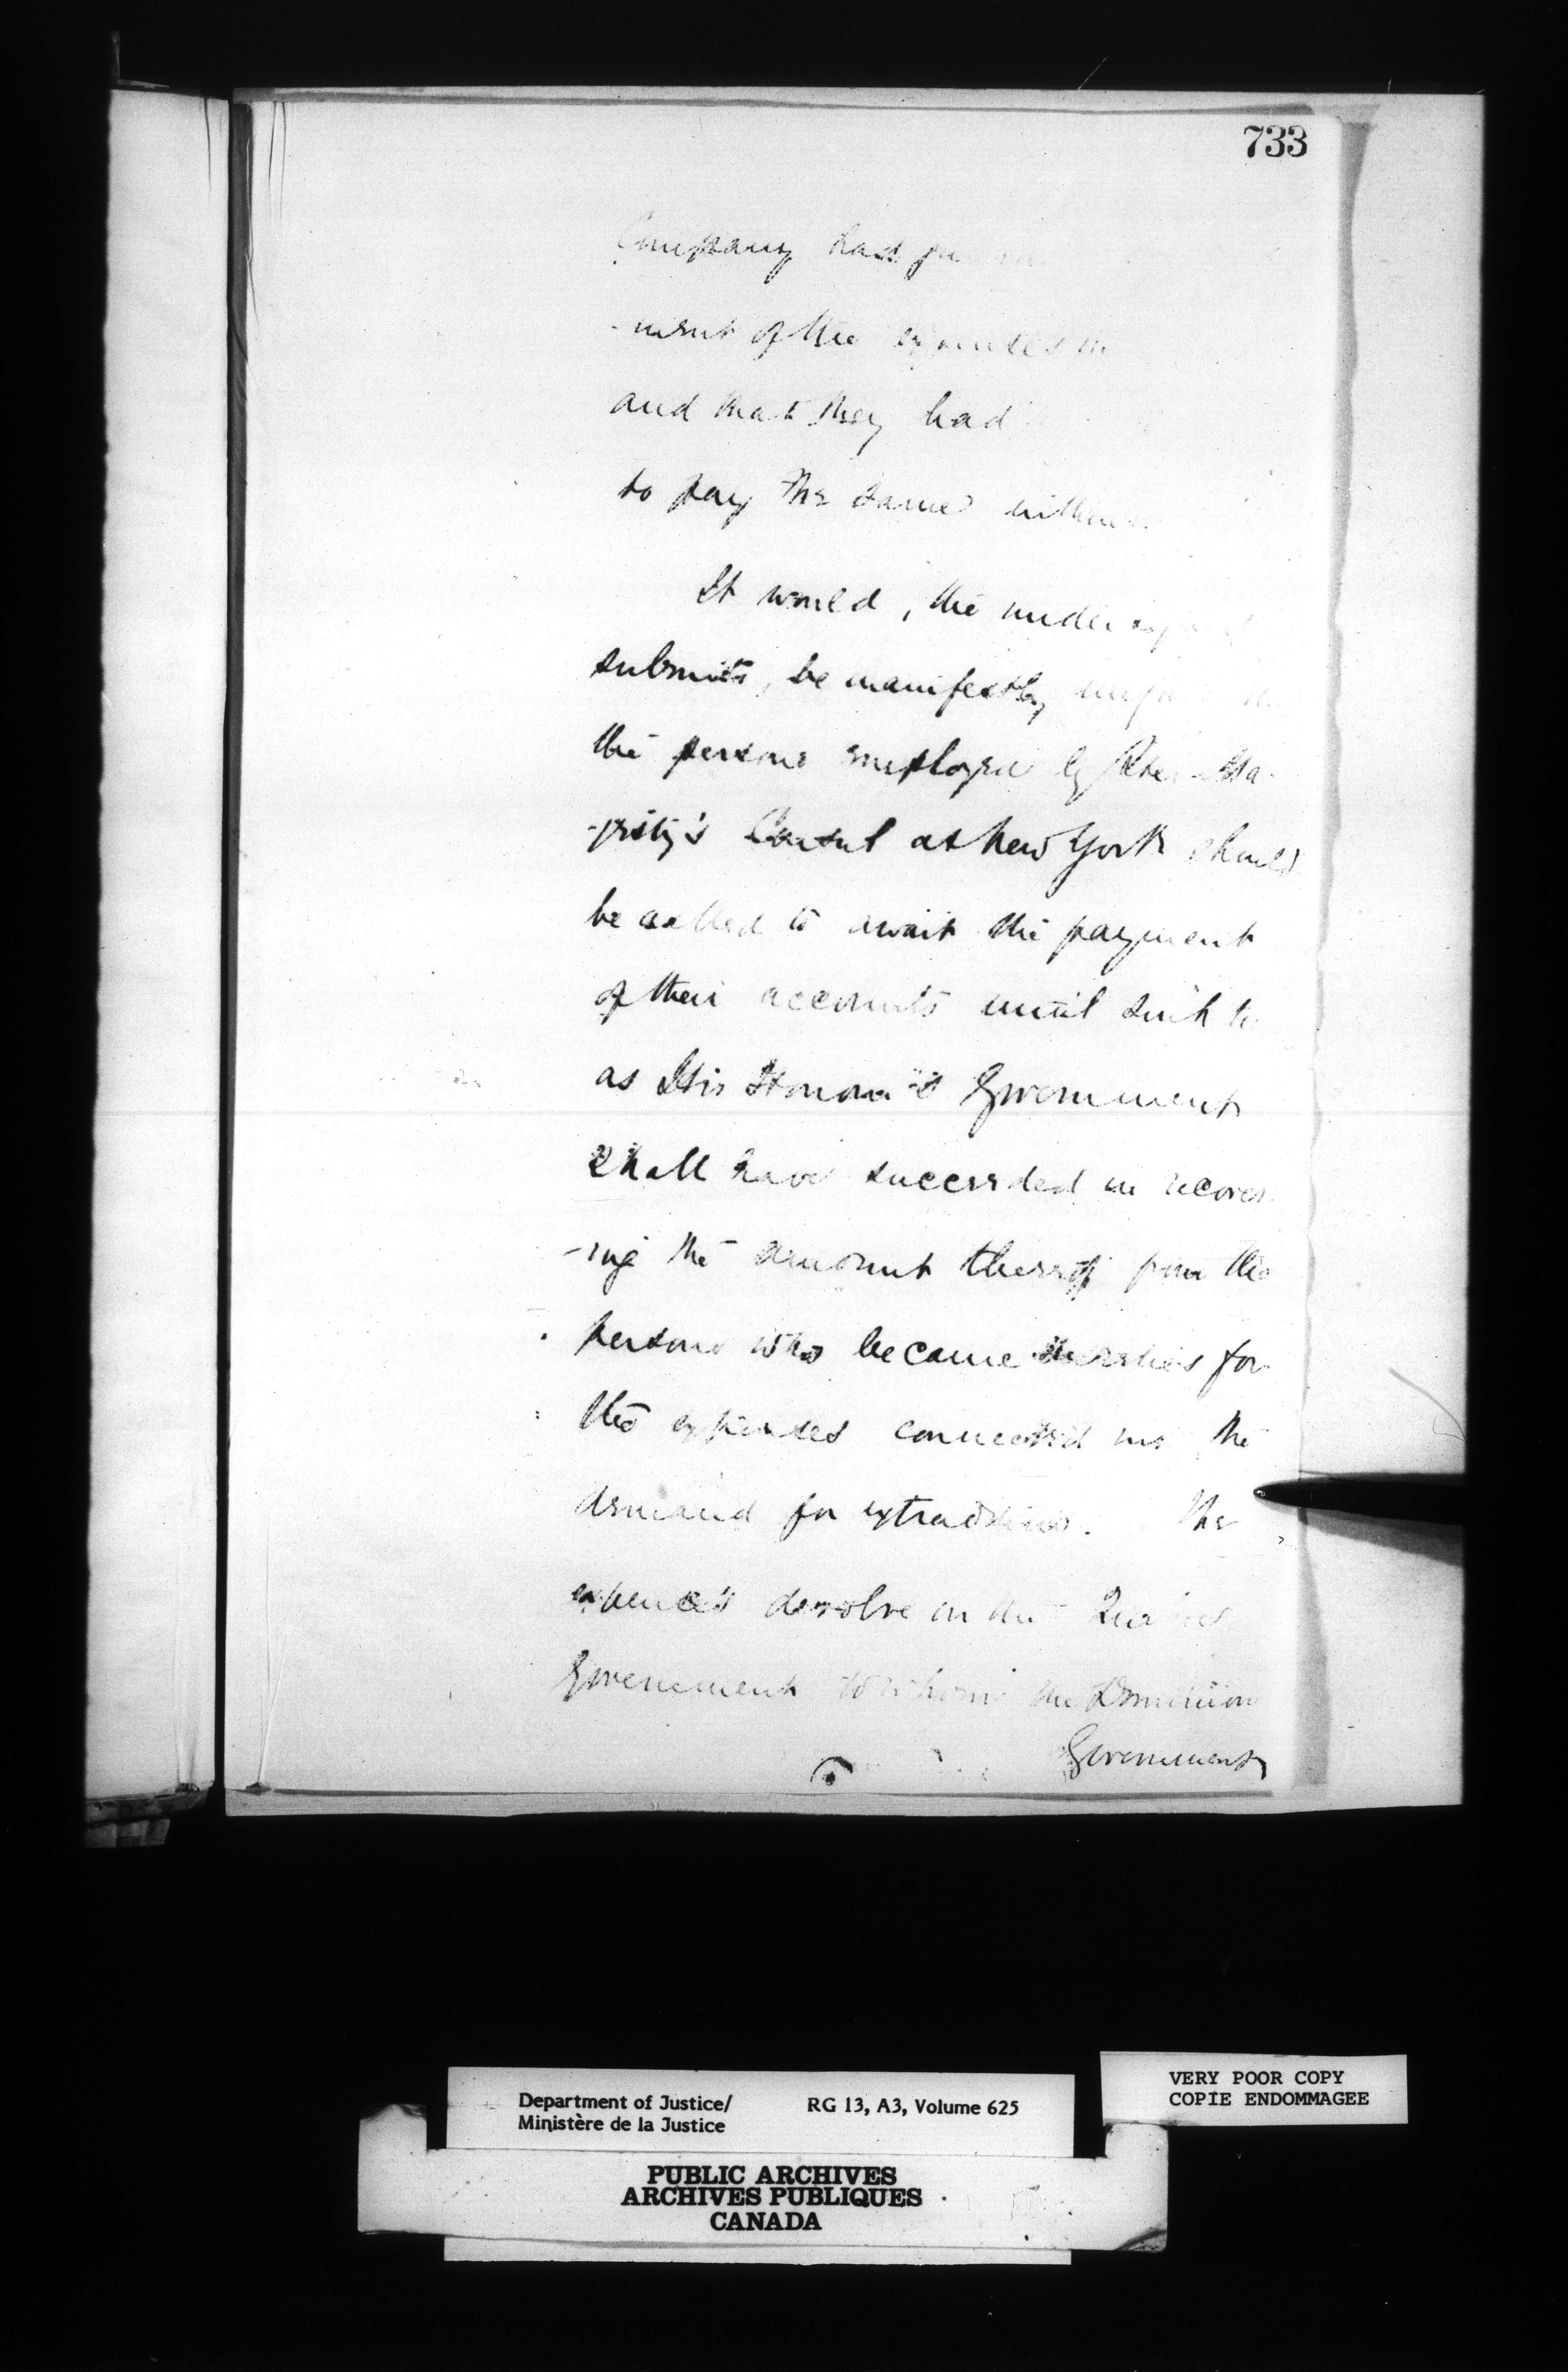 733
Company had
-ment of the expenses in
and that they had
to pay the same
It would, the undersigned
submits, be manifestly
the persons employed by Her Ma-
-jesty's Consul at New York should
be called to await the payment
of their accounts until such
as His Honour's Government
shall have succeeded in recover-
-ing the amount thereof from the
persons who became sureties for
the expenses connected with the
demand for extradition. The
expenses devolve on the
Government to whom the Dominion
Government
Department of Justice/
Ministère de la Justice
RG 13, A3, Volume 625
VERY POOR COPY
COPIE ENDOMMAGEE
PUBLIC ARCHIVES
ARCHIVES PUBLIQUES
CANADA